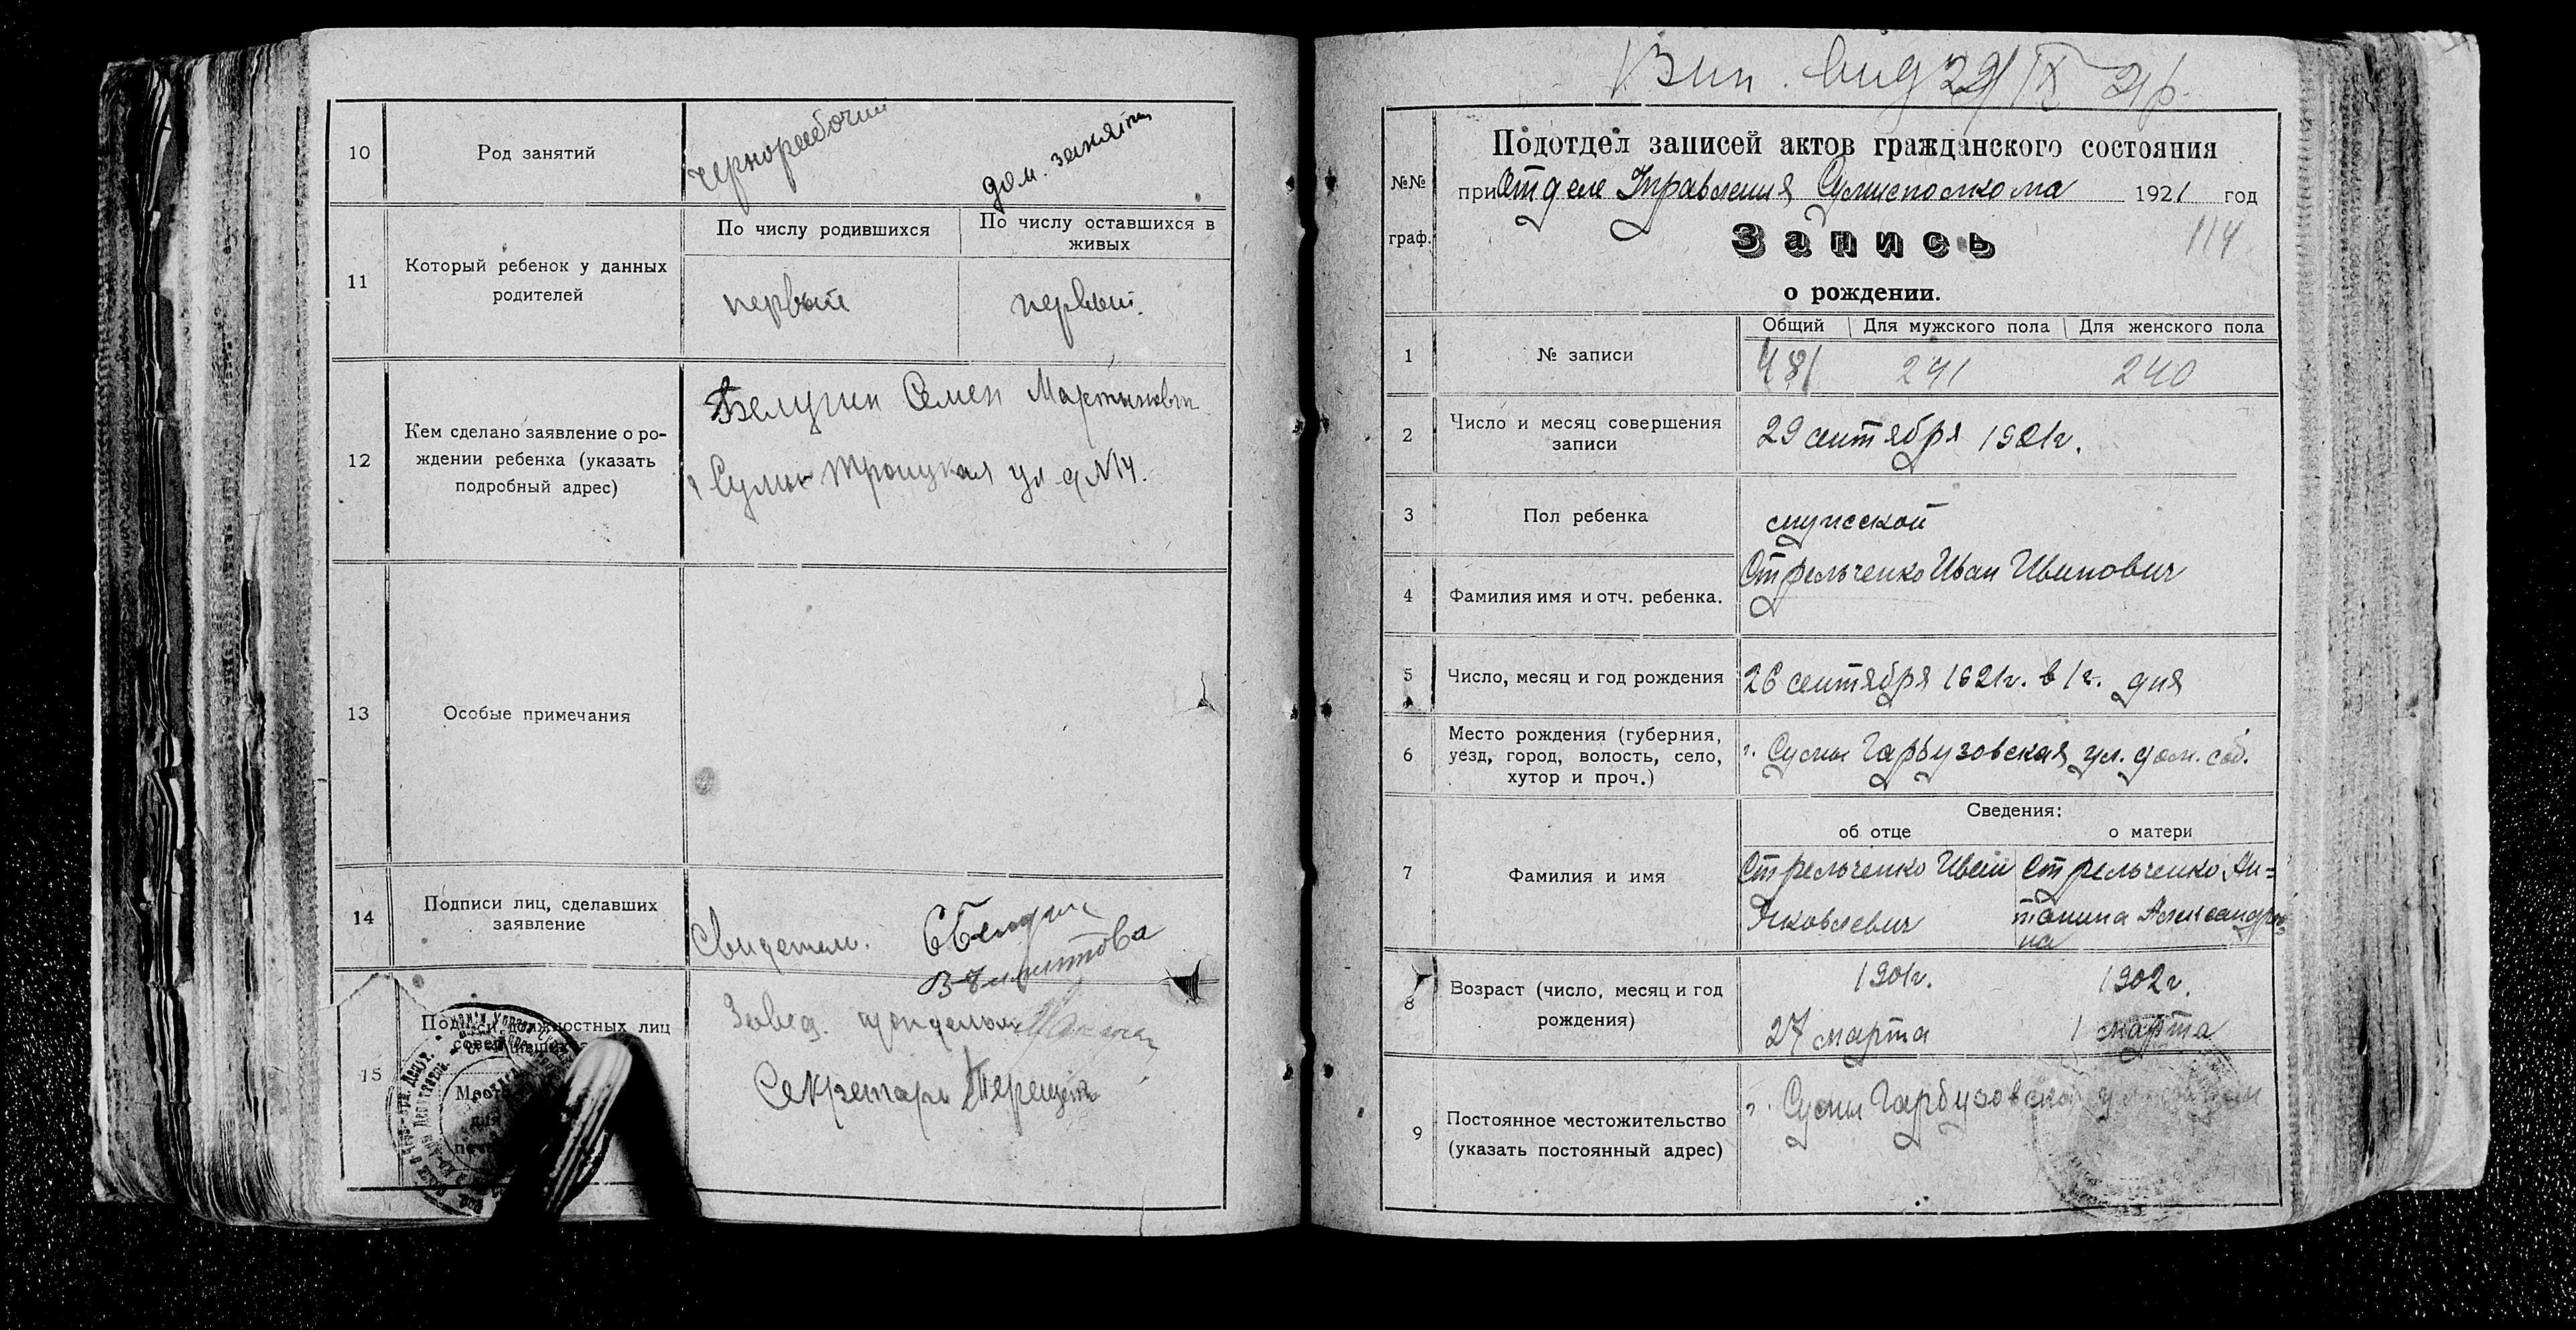 10
Род занятий
чернорабочий
дом. занятия
11
Который ребенок у данных
родителей
По числу родившихся
По числу оставшихся в
живых
первый
первый.
12
Кем сделано заявление о ро-
ждении ребенка (указать
подробный адрес)
Белугин Семен Мартынович
г Сумы Троицкая ул д №14.
13
Особые примечания
14
Подписи лиц, сделавших
заявление
Свидетели.
15
Подписи должностных лиц
Завед. подотделом
Секретарь
Вип. вид 29/IX 21р.
№№
граф.
Подотдел записей актов гражданского состояния
при Отделе Управления Сумисполкома 1921 год
114
Запись
о рождении.
1
№ записи
Общий
Для мужского пола
Для женского пола
481
241
240
2
Число и месяц совершения
записи
29 сентября 1921г.
3
Пол ребенка
мужской
4
Фамилия имя и отч. ребенка.
Стрельченко Иван Иванович
5
Число, месяц и год рождения
26 сентября 1921г. в 1 ч. дня
6
Место рождения (губерния,
уезд, город, волость, село,
хутор и проч.)
г. Сумы Гарбузовская ул. дом. соб.
7
Фамилия и имя
Сведения:
об отце
о матери
Стрельченко Иван
Яковлевич
Стрельченко Ан=
тонина Александров
на
8
Возраст (число, месяц и год
рождения)
1901г.
27 марта
1902г.
1 марта
9
Постоянное местожительство
(указать постоянный адрес)
г. Сумы Гарбузовская ул.